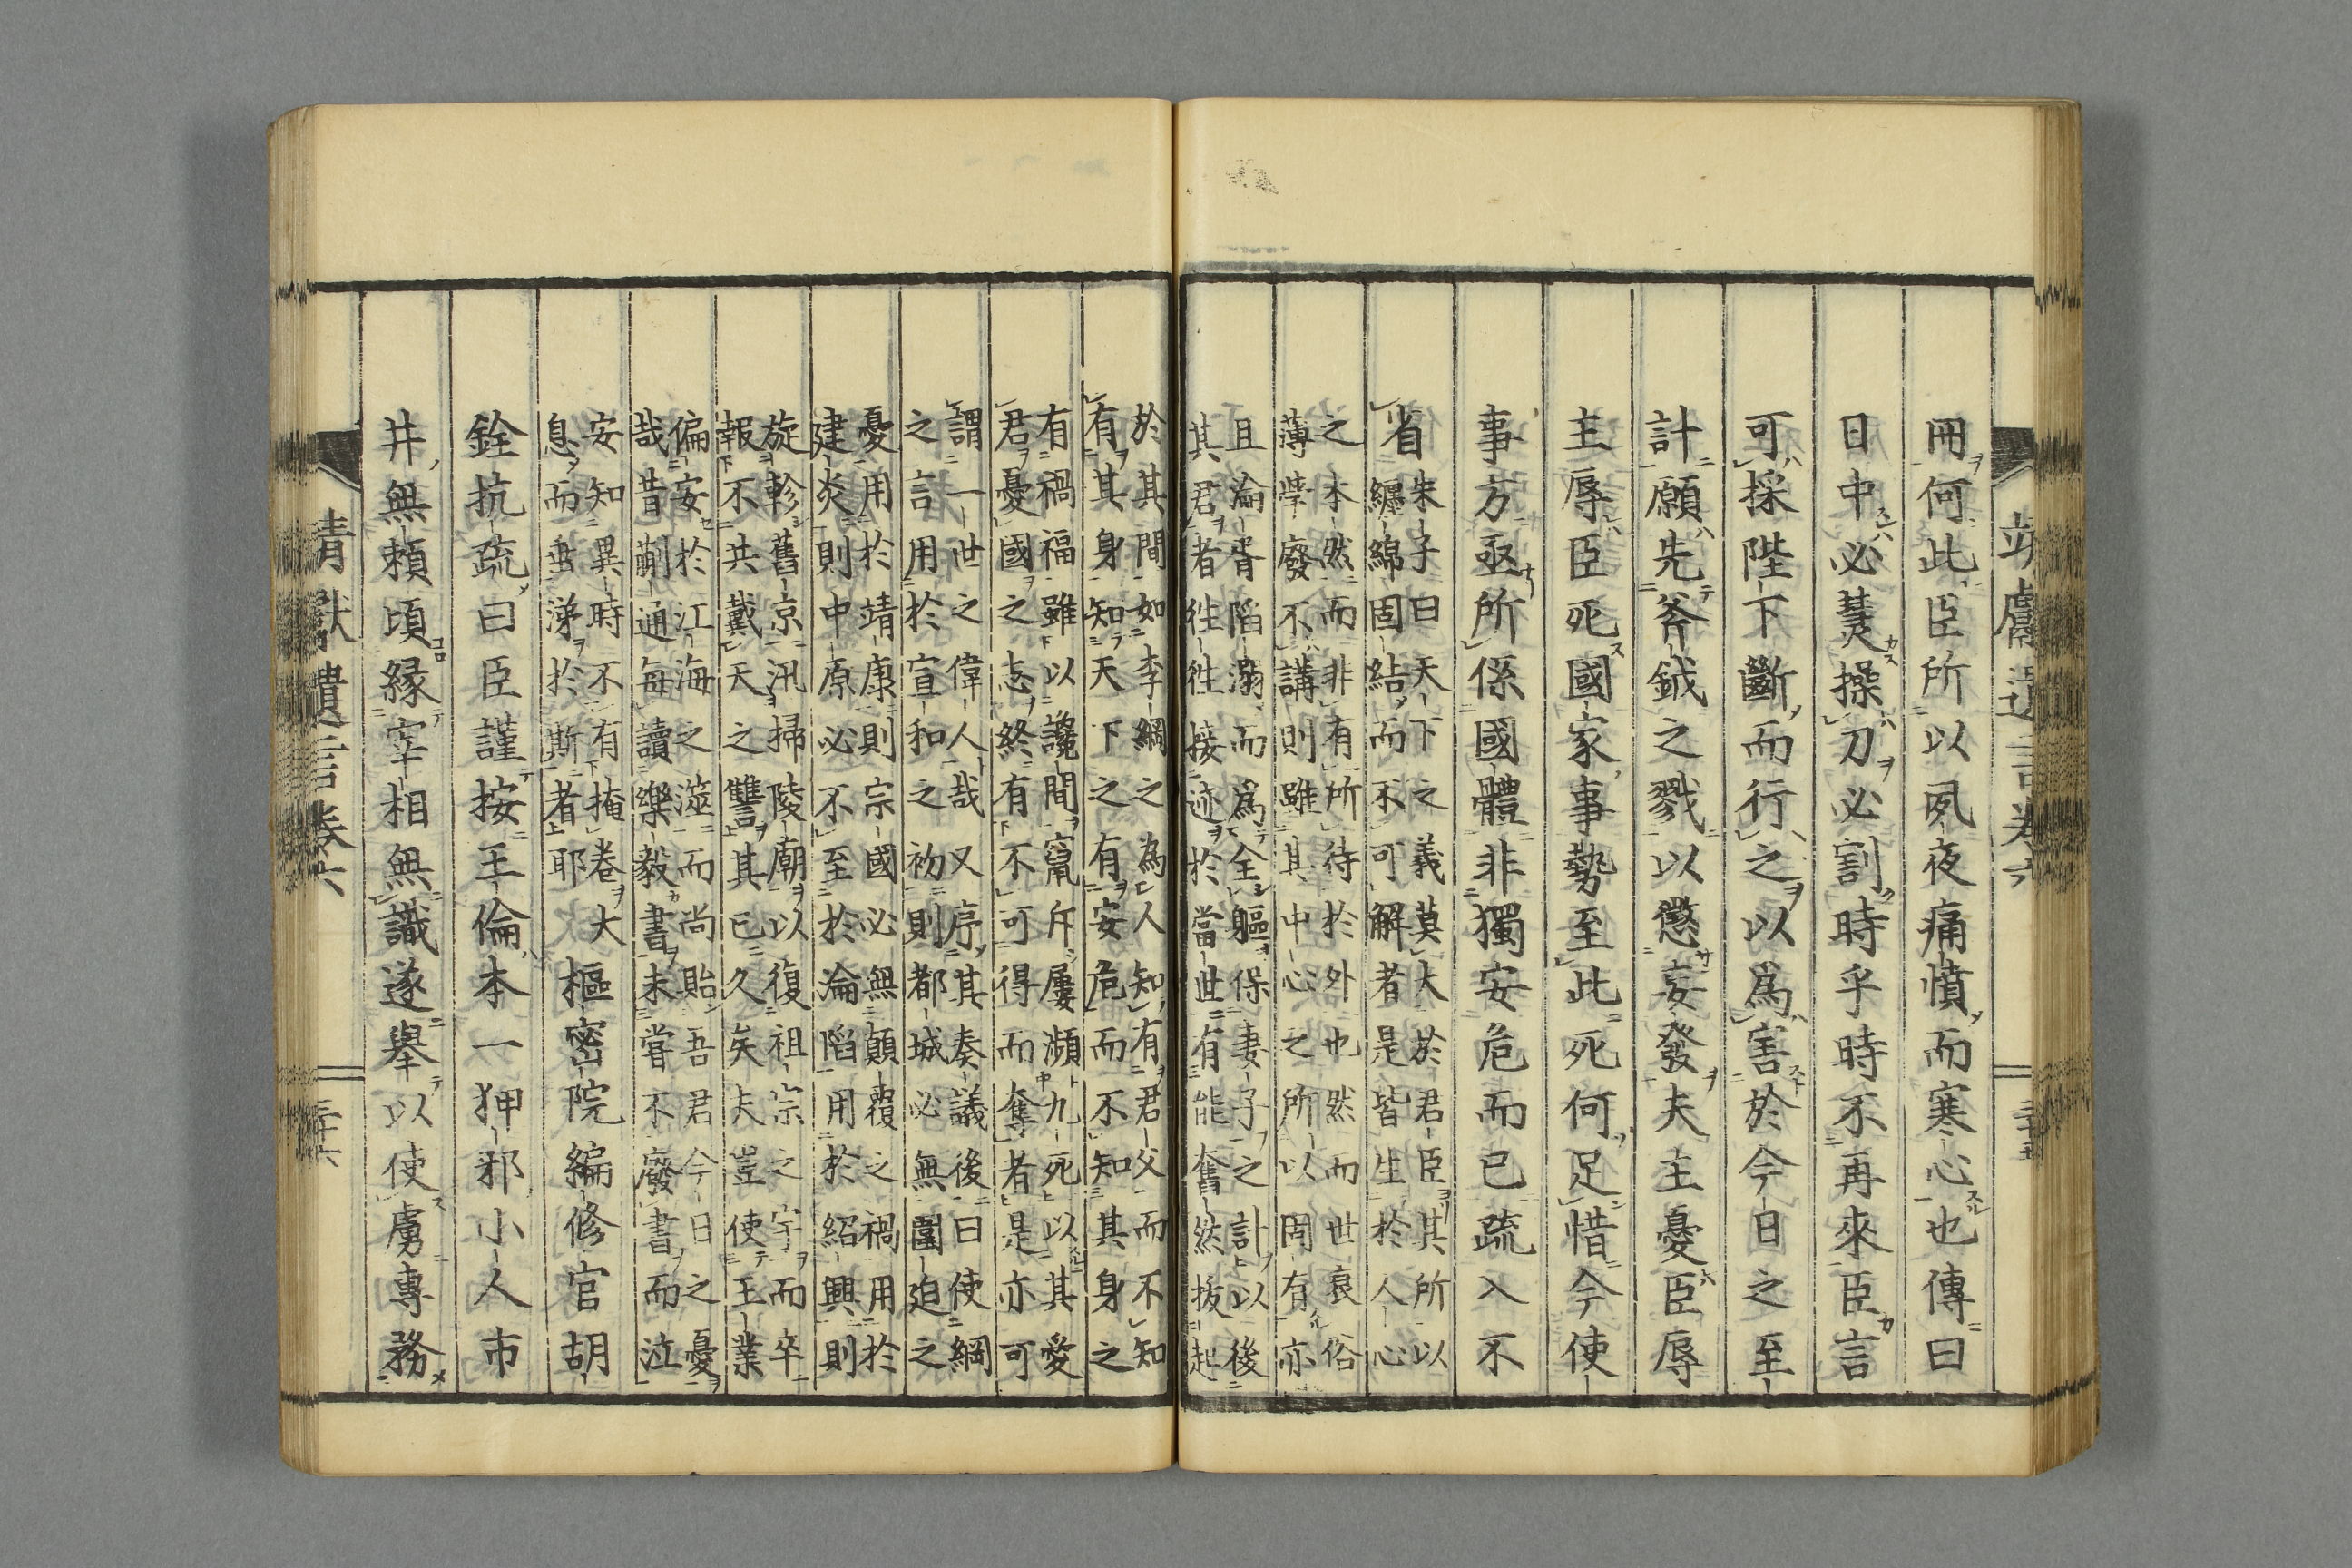 冊何此臣所以夙夜痛憤而寒心也傳曰
日中必熭操刀必割時乎時不再來臣言
可採陛下斷而行之以爲害於今日之至
計願先斧鉞之戮以懲妄發夫主憂臣辱
主辱臣死國家事勢至此死何足惜今使
事方亟所係國體非獨安危而已疏入不
省
朱子曰天下之義莫大於君臣其所以
纏綿固結而不可解者是皆生於人心
之本然而非有所待於外也然而世衰俗
薄學廢不講則雖其中心之所以固有亦
且淪胥陷溺而爲全軀保妻子之計以後
其君者徃徃接迹於當世有能奮然拔起
於其間如李綱之為人知有君父而不知
有其身知天下之有安危而不知其身之
有禍福雖以讒間竄斥屢瀕九死以其愛
君憂國之志終有不可得而奪者是亦可
謂一世之偉人哉又序其奏議後曰使綱
之言用於宣和之初則都城必無圍迫之
憂用於靖康則宗國必無顛覆之禍用於
建炎則中原必不至於淪陷用於紹興則
旋軫舊京汛掃陵廟以復祖宗之宇而卒
報不共戴天之讐其已久矣夫豈使王業
偏安於江海之澨而尚貽吾君今日之憂
哉昔蒯通毎讀樂毅書未嘗不廢書而泣
安知異時不有掩卷大
息而垂涕於斯者耶
樞密院編修官胡
銓抗疏曰臣謹按王倫本一狎邪小人市
井無頼頃緣宰相無識遂舉以使虜專務
靖獻遺言卷六
三十六